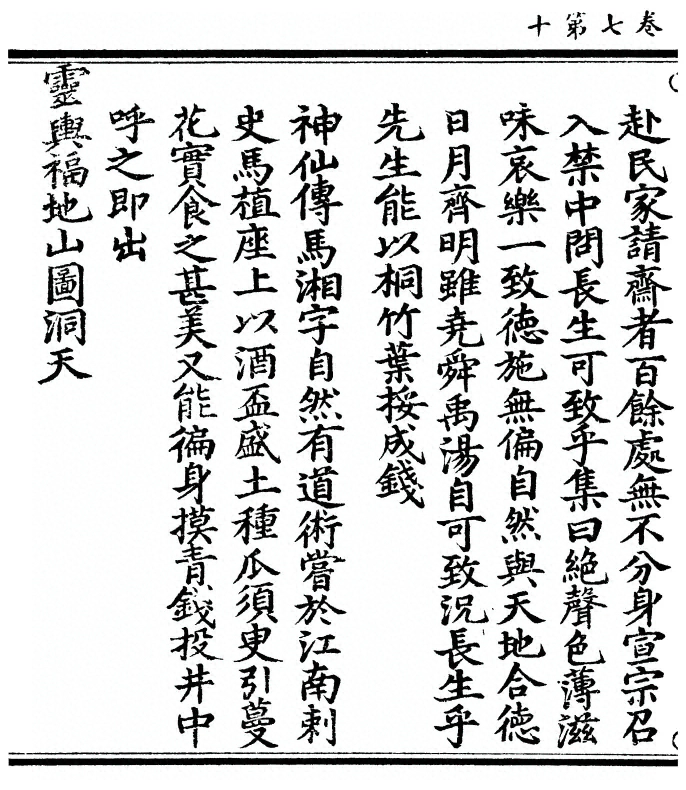 卷七第十
赴民家請齋者百餘處無不分身宣宗召
入禁中問長生可致乎集曰絕聲色薄滋
味哀樂一致德施無偏自然與天地合德
日月齊明雖堯舜禹湯自可致況長生乎
先生能以桐竹葉挼成錢
神仙傳馬湘字自然有道術嘗於江南刺
史馬植座上以酒盃盛土種瓜須臾引蔓
花實食之甚美又能徧身摸青錢投井中
呼之即出
靈輿福地山圖洞天